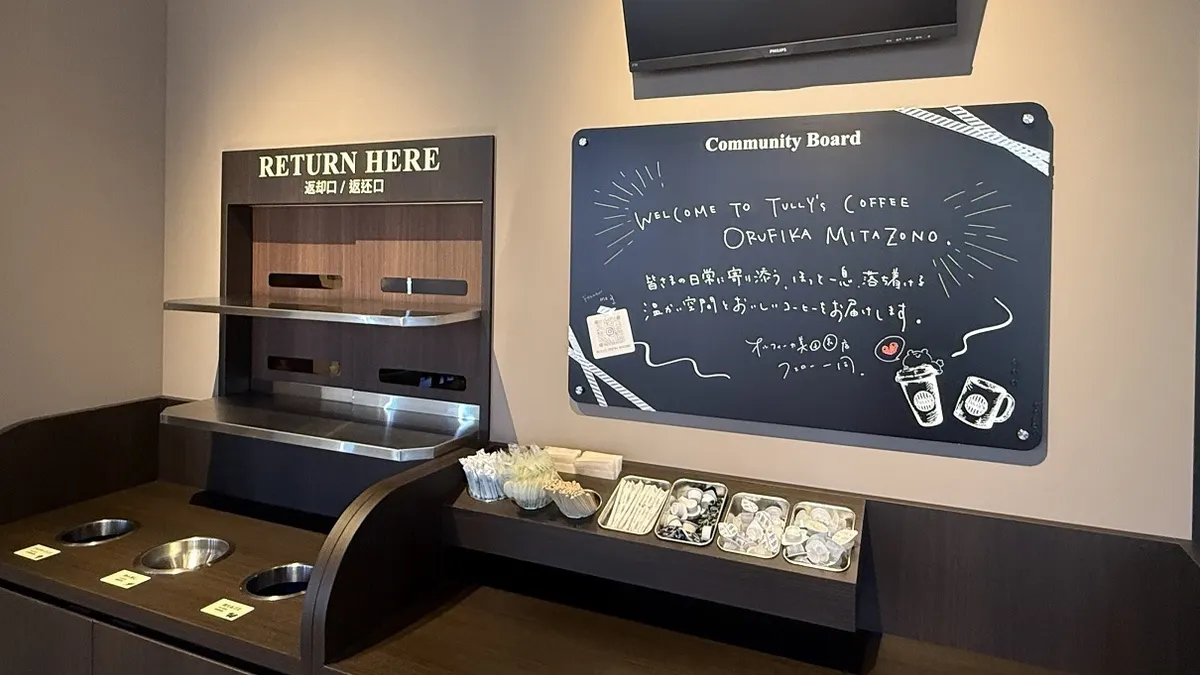 PHILIPS
RETURN HERE
返却口 / 返还口
Community Board
WELCOME TO TULLY'S COFFEE
ORUFIKA MITAZONO.
皆さまの日常に寄り添う、ほっと一息、落ち着ける
温かい空間とおいしいコーヒーをお届けします。
フェロー一同.